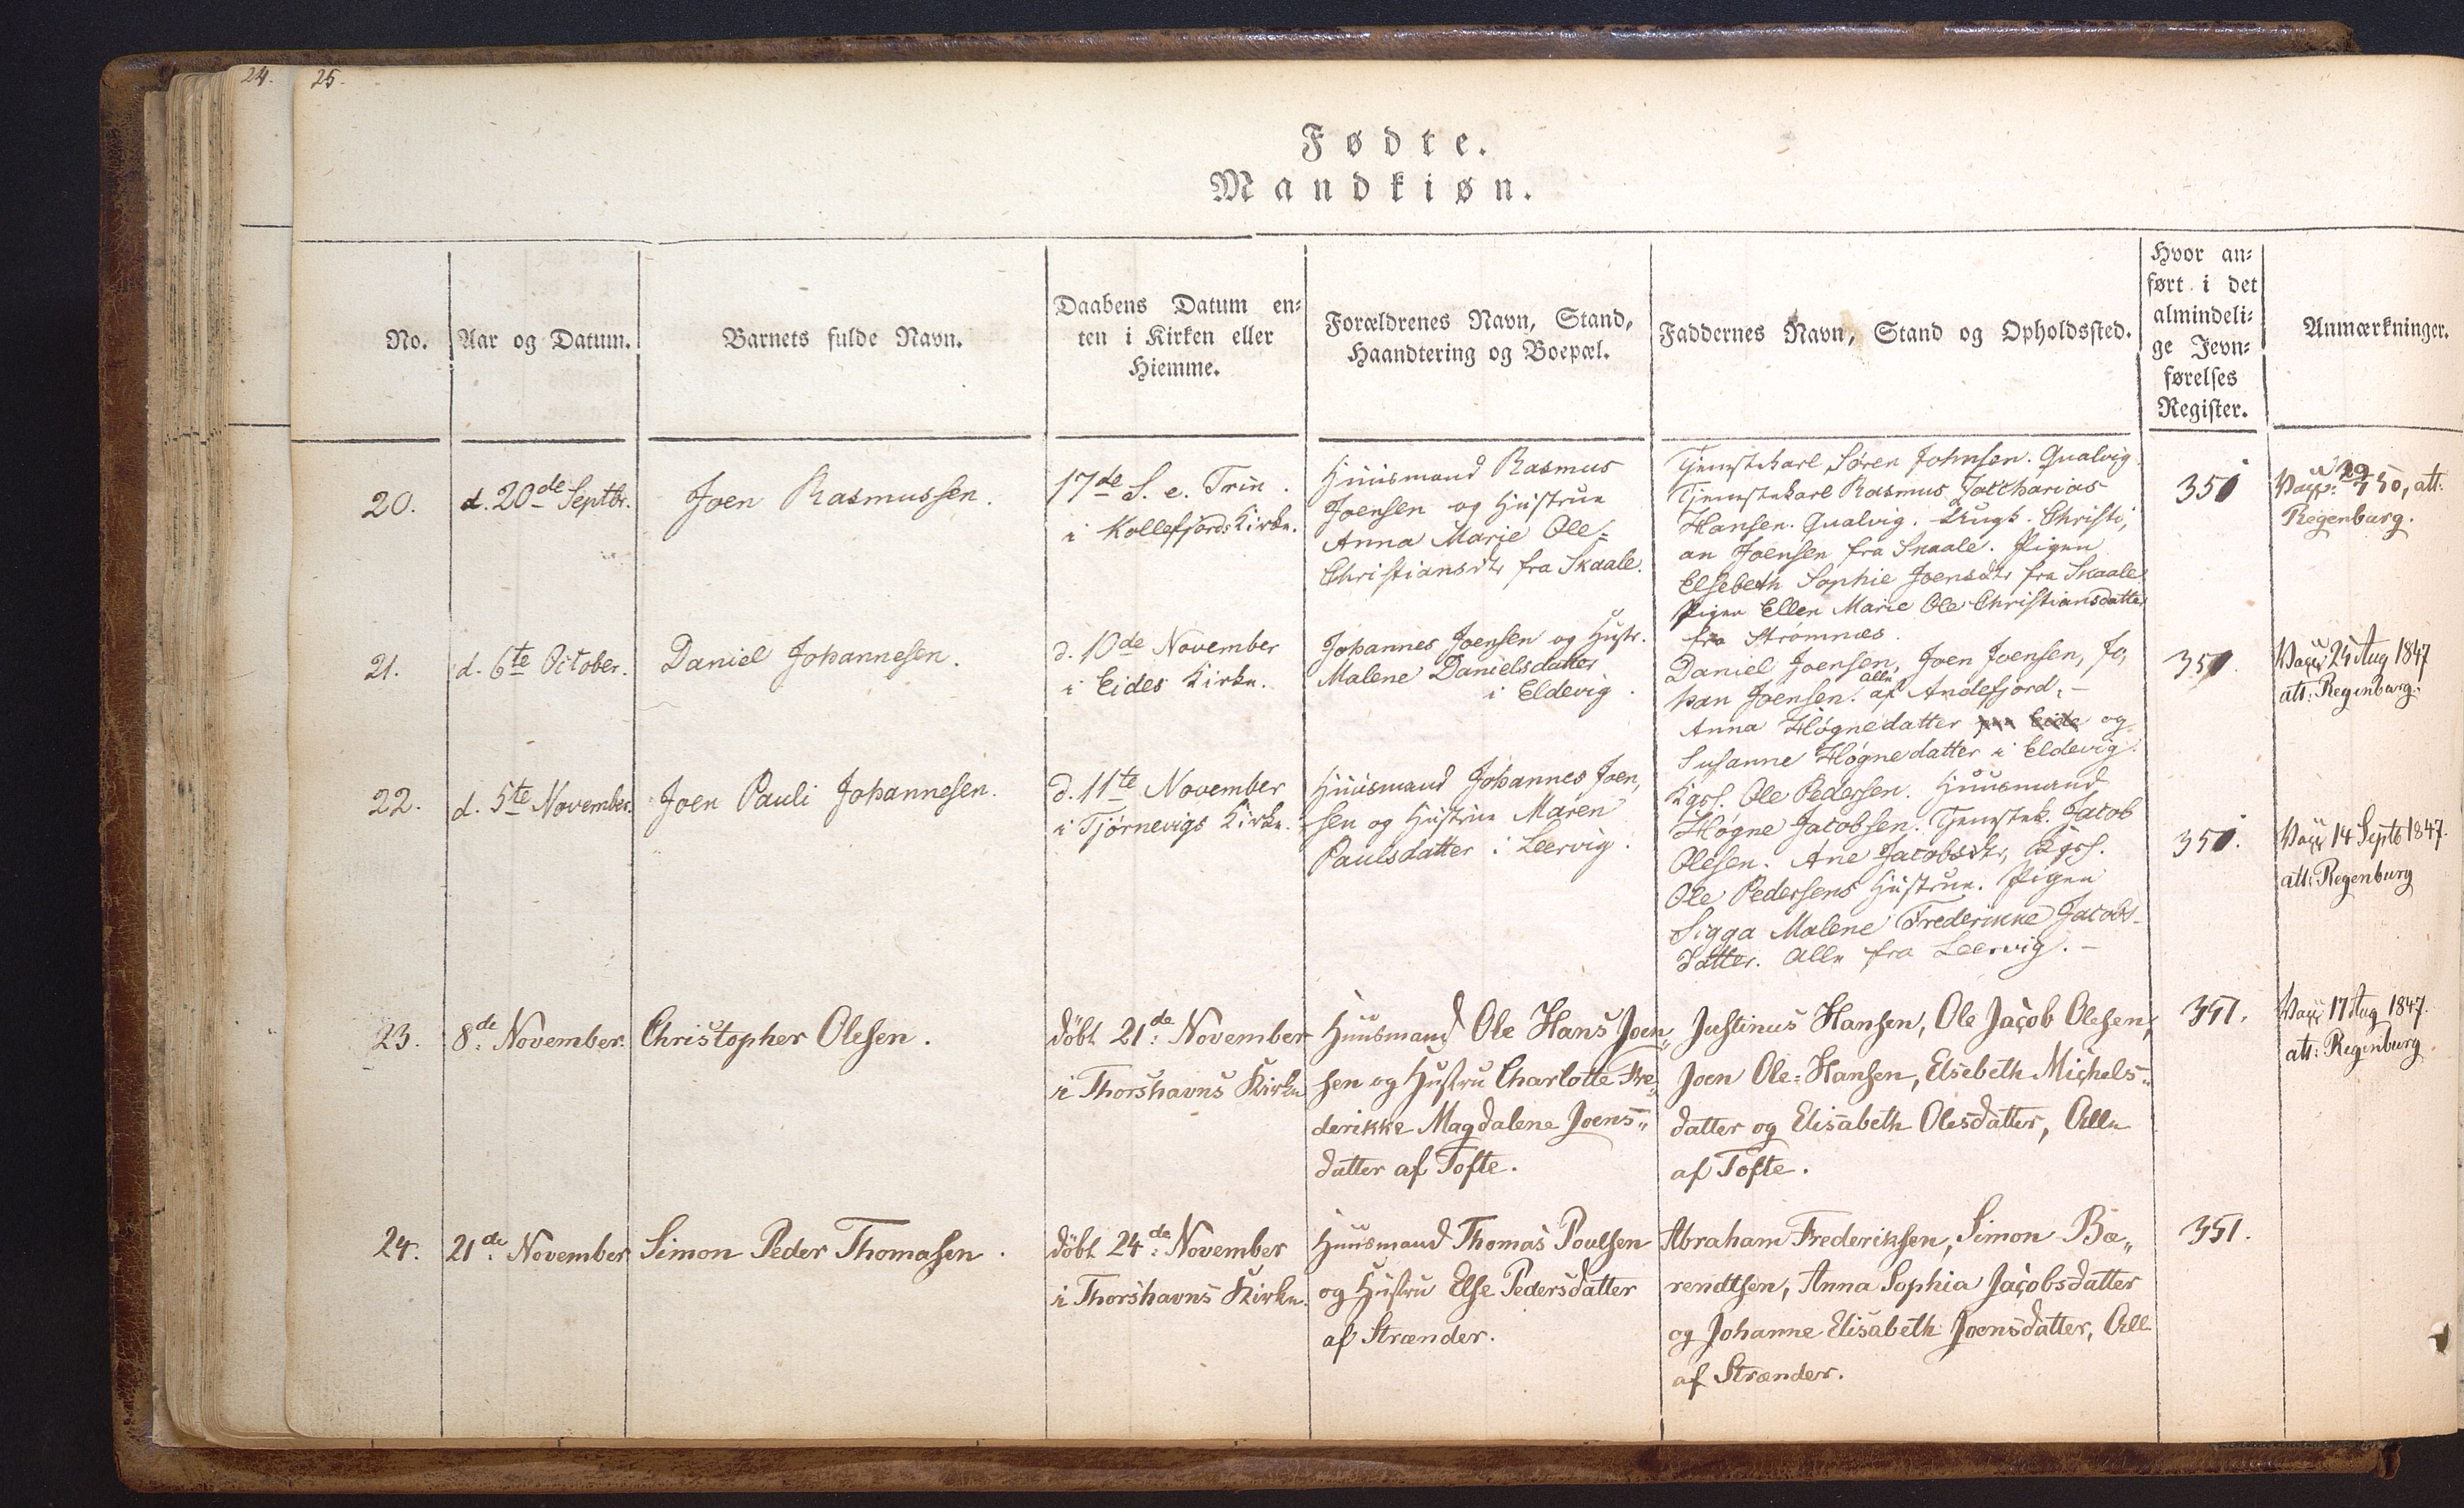 24. 25.
Fødte.
Mandkiøn.
No.
Aar og Datum.
Barnets fulde Navn.
Daabens Datum en-
ten i Kirken eller
Hiemme.
Forældrenes Navn, Stand,
Haandtering og Boepæl.
Faddernes Navn, Stand og Opholdssted.
Hvor an-
ført i det
almindeli-
ge Jevn-
førelses
Register.
Anmærkninger.
20.
d. 20de Septbr.
Joen Rasmussen.
17de S. e. Trin.
i Kollefjords Kirke.
Huusmand Rasmus
Joensen og Hustrue
Anna Marie Ole=
Christiansdtr fra Skaale.
Tjenestekarl Søren Johnsen. Qualvig
Tjenestekarl Rasmus Zaccharias
Hansen. Qualvig. Ungk. Christi,
an Joensen fra Skaale. Pigen
Elsebeth Sophie Joensdtr fra Skaale
Pigen Ellen Marie Ole Christiansdatter
fra Strømnæs.
351
50, att:
Regenburg.
21.
d. 6te October.
Daniel Johannesen.
d. 10de November
i Eides Kirke.
Johannes Joensen og Hustr.
Malene Danielsdatter
i Eldevig.
Daniel Joensen, Joen Joensen, Jo,
han Joensen. alle af Andefjord. -
Anna Høgnedatter paa Eide og
Susanne Høgnedatter i Eldevig.
351.
Vacc 24 Aug 1847
att: Regenburg.
22.
d. 5te November.
Joen Pauli Johannesen.
d. 11te November
i Tjørnevigs Kirke.
Huusmand Johannes Joen,
sen og Hustrue Maren
Paulsdatter i Leervig.
Kgsf. Ole Pedersen. Huusmand
Høgne Jacobsen. Tjenestek. Jacob
Olesen. Ane Jacobsdtr, Kgsf.
Ole Pedersens Hustrue. Pigen
Sigga Malene Frederikke Jacobs-
datter. Alle fra Leervig. -
351.
Vacc 14 Septb 1847.
att: Regenburg
23.
8de November.
Christopher Olesen.
döbt 21de November
i Thorshavns Kirke
Huusmand Ole Hans Joen„
sen og Hustru Charlotte Fre„
derikke Magdalene Joens„
datter af Tofte.
Justinus Hansen, Ole Jacob Olesen,
Joen Ole=Hansen, Elsebeth Michels„
datter og Elisabeth Olesdatter, Alle
af Tofte.
351.
Vacc 17 Aug 1847.
att: Regenburg
24.
21de November
Simon Peder Thomasen.
döbt 24de November
i Thorshavns Kirke.
Huusmand Thomas Poulsen
og Hustru Else Pedersdatter
af Strænder.
Abraham Frederiksen, Simon Bæ„
rendtsen, Anna Sophia Jacobsdatter
og Johanne Elisabeth Joensdatter, All
af Strænder.
351.